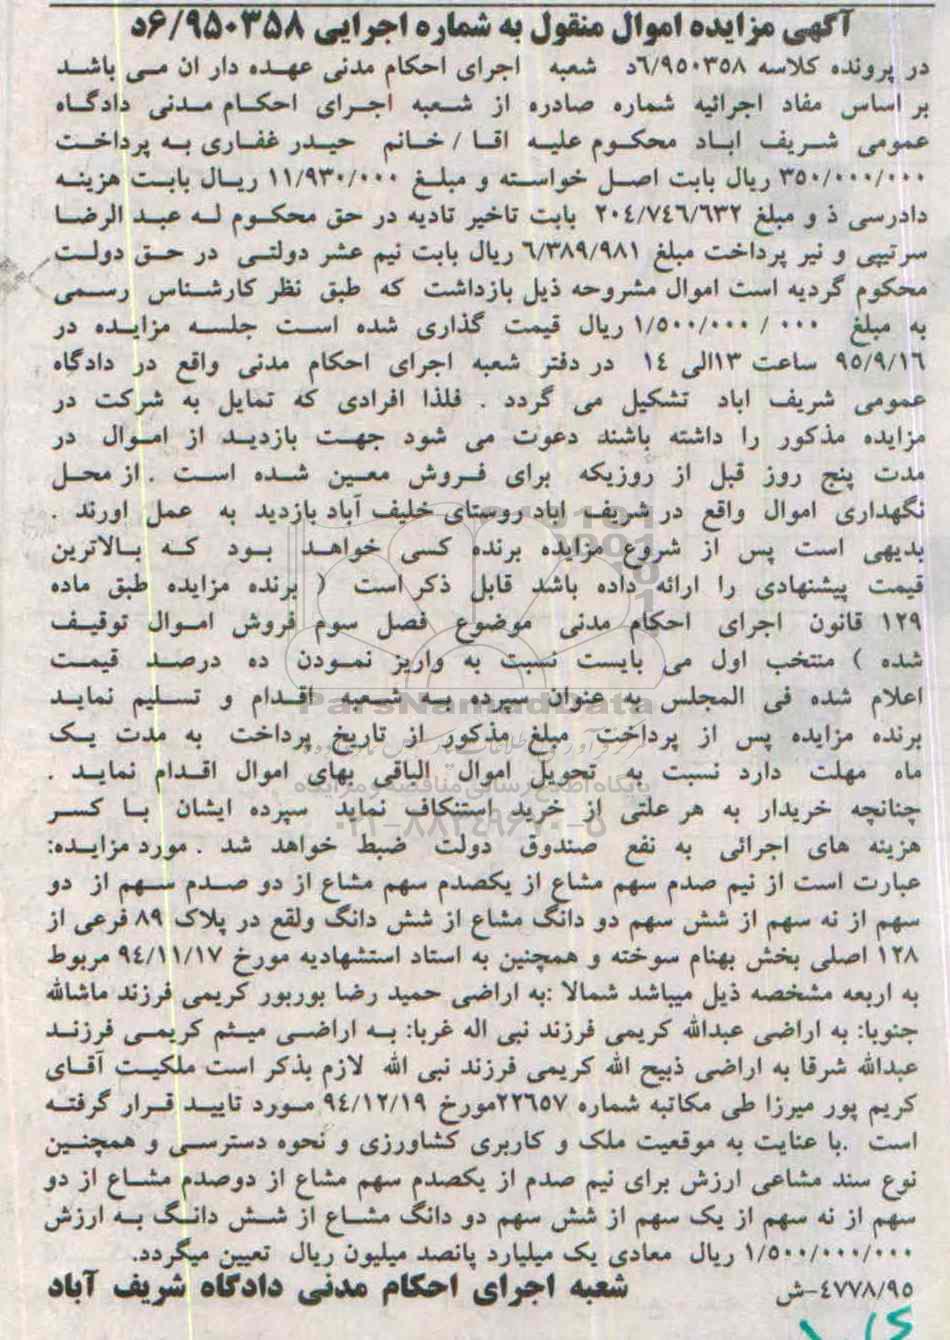 آگهی مزایده اموال منقول به شماره اجرایی ۶/۹۵۰۳۵۸د
در پرونده کلاسه ۶/۹۵۰۳۵۸د شعبه اجرای احکام مدنی عهده دار ان می باشد
بر اساس مفاد اجرائیه شماره صادره از شعبه اجرای احکام مدنی دادگاه
عمومی شریف اباد محکوم علیه اقا / خانم حیدر غفاری به پرداخت
۳۵۰/۰۰۰/۰۰۰ ریال بابت اصل خواسته و مبلغ ۱۱/۹۳۰/۰۰۰ ریال بابت هزینه
دادرسی ذ و مبلغ ۲۰۴/۷۴۶/۶۳۲ بابت تاخیر تادیه در حق محکوم له عبد الرضا
سرتیپی و نیر پرداخت مبلغ ۶/۳۸۹/۹۸۱ ریال بابت نیم عشر دولتی در حق دولت
محکوم گردیه است اموال مشروحه ذیل بازداشت که طبق نظر کارشناس رسمی
به مبلغ ۱/۵۰۰/۰۰۰ / ۰۰۰ ریال قیمت گذاری شده است جلسه مزایده در
۹۵/۹/۱۶ ساعت ۱۳الی ۱۴ در دفتر شعبه اجرای احکام مدنی واقع در دادگاه
عمومی شریف اباد تشکیل می گردد . فلذا افرادی که تمایل به شرکت در
مزایده مذکور را داشته باشند دعوت می شود جهت بازدید از اموال در
مدت پنج روز قبل از روزیکه برای فروش معین شده است . از محل
نگهداری اموال واقع در شریف اباد روستای خلیف آباد بازدید به عمل اورند .
بدیهی است پس از شروع مزایده برنده کسی خواهد بود که بالاترین
قیمت پیشنهادی را ارائه داده باشد قابل ذکر است ( برنده مزایده طبق ماده
۱۲۹ قانون اجرای احکام مدنی موضوع فصل سوم فروش اموال توقیف
شده ) منتخب اول می بایست نسبت به واریز نمودن ده درصد قیمت
اعلام شده فی المجلس به عنوان سپرده به شعبه اقدام و تسلیم نماید
ParsNamadData
برنده مزایده پس از پرداخت مبلغ مذکور از تاریخ پرداخت به مدت یک
ماه مهلت دارد نسبت به تحویل اموال الباقی بهای اموال اقدام نماید .
پایگاه اطلاع رسانی مناقصه و مزایده
چنانچه خریدار به هر علتی از خرید استنکاف نماید سپرده ایشان با کسر
۰۲۱-۸۸۳۴۹۶۷۰-۵
هزینه های اجرائی به نفع صندوق دولت ضبط خواهد شد . مورد مزایده:
عبارت است از نیم صدم سهم مشاع از یکصدم سهم مشاع از دو صدم سهم از دو
سهم از نه سهم از شش سهم دو دانگ مشاع از شش دانگ ولقع در پلاک ۸۹ فرعی از
۱۲۸ اصلی بخش بهنام سوخته و همچنین به استاد استشهادیه مورخ ۹۴/۱۱/۱۷ مربوط
به اربعه مشخصه ذیل میباشد شمالا :به اراضی حمید رضا بوربور کریمی فرزند ماشالله
جنوبا: به اراضی عبدالله کریمی فرزند نبی اله غربا: به اراضی میثم کریمی فرزند
عبدالله شرقا به اراضی ذبیح الله کریمی فرزند نبی الله لازم بذکر است ملکیت آقای
کریم پور میرزا طی مکاتبه شماره ۲۲۶۵۷مورخ ۹۴/۱۲/۱۹ مورد تایید قرار گرفته
است .با عنایت به موقعیت ملک و کاربری کشاورزی و نحوه دسترسی و همچنین
نوع سند مشاعی ارزش برای نیم صدم از یکصدم سهم مشاع از دوصدم مشاع از دو
سهم از نه سهم از یک سهم از شش سهم دو دانگ مشاع از شش دانگ به ارزش
۱/۵۰۰/۰۰۰/۰۰۰ ریال معادی یک میلیارد پانصد میلیون ریال تعیین میگردد.
۴۷۷۸/۹۵-ش شعبه اجرای احکام مدنی دادگاه شریف آباد